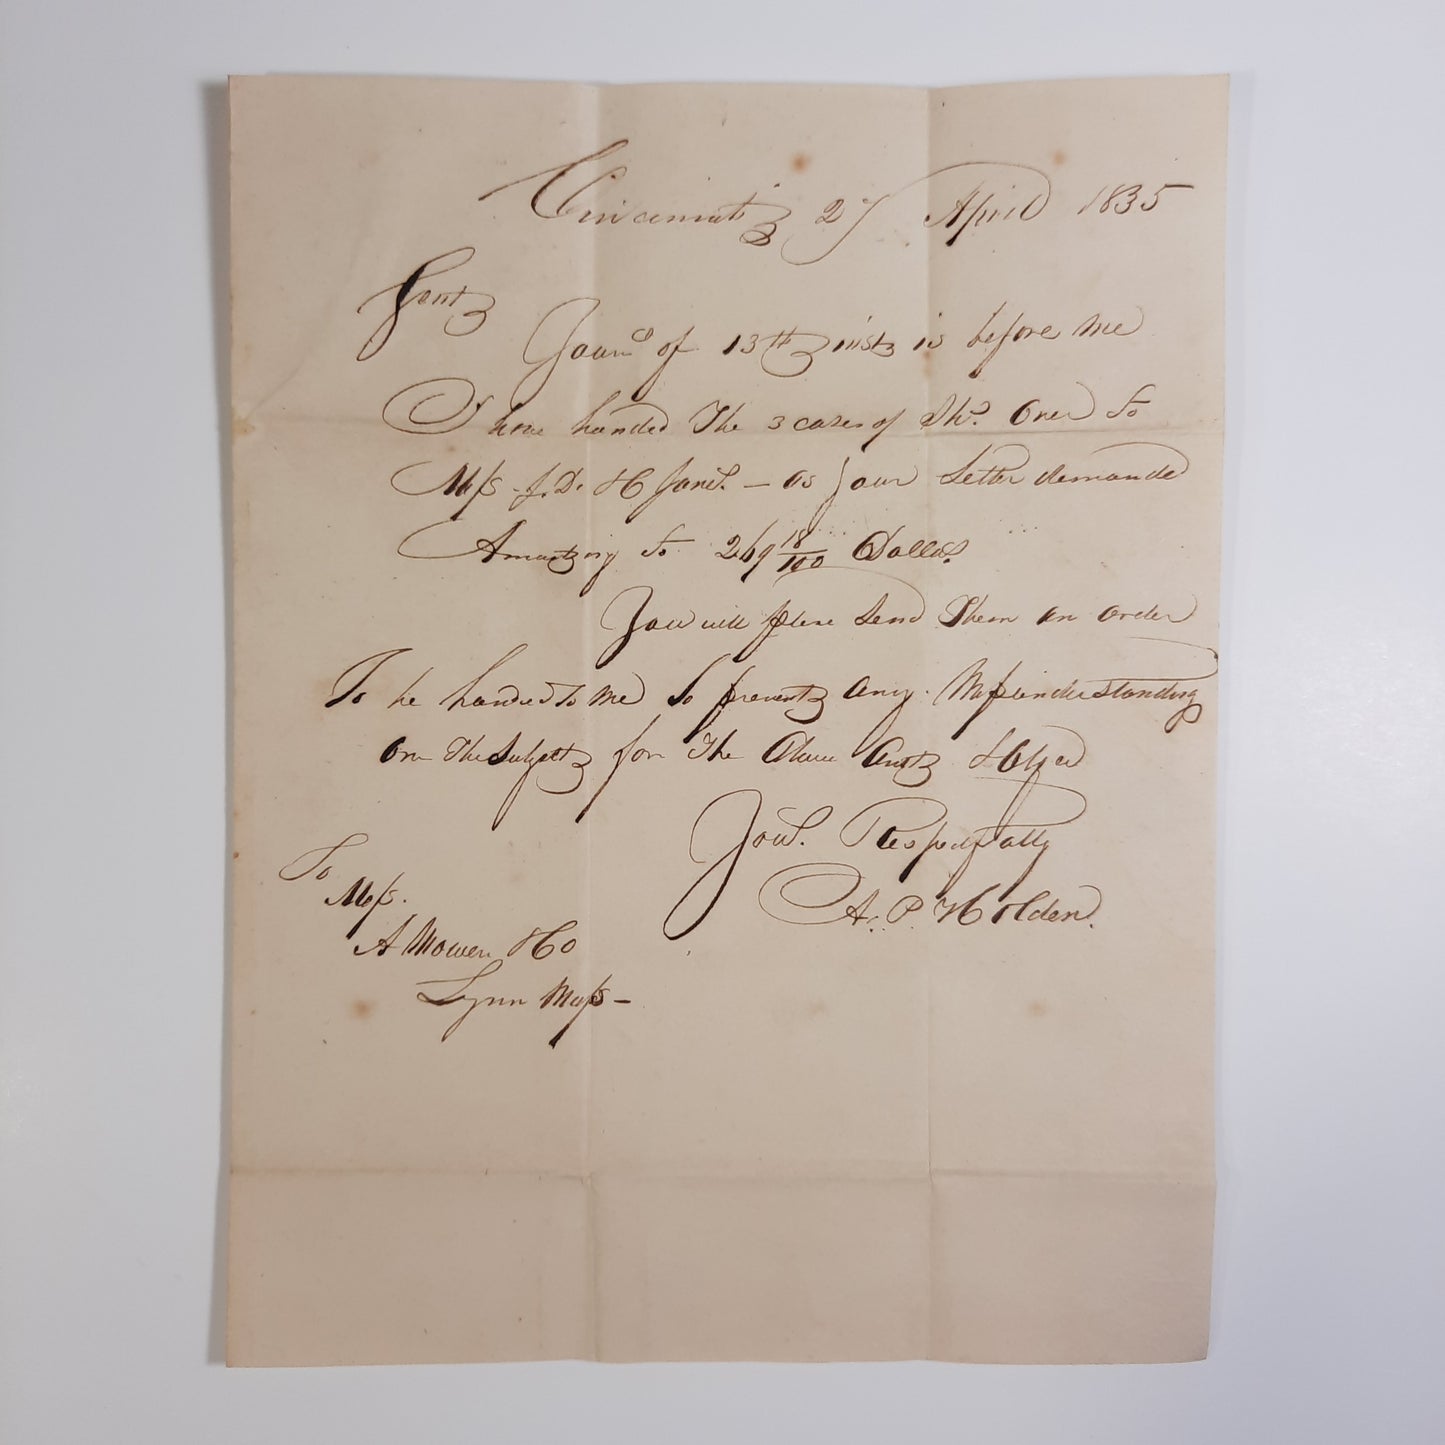 Cincinnati 27 April 1835
Gent
Yours of 13th inst is before me
I have handed The 3 cases of Shs. Over To
Mess J. D. & C Jones. – as your Letter demands
Amounting to 269 18/100 Dollars
You will please Send Them an order
To be handed to me to prevent any Missunderstanding
on The Subject for The Above Amt
Yours. Respectfully
A. P. Holden.
To
Mess.
A Mower & Co
Lynn Mass –